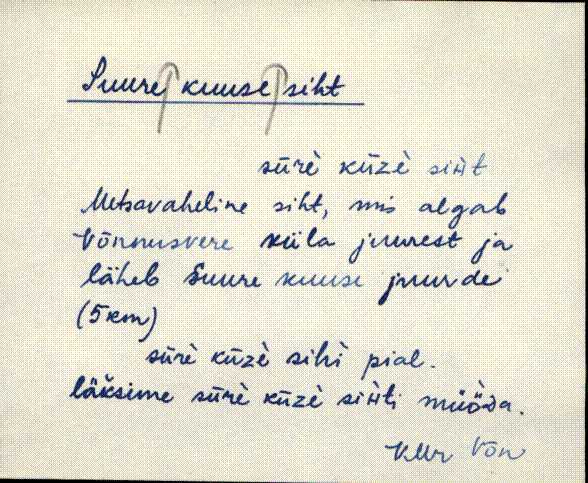 Suure kuuse siht
sūrè kūzè siht
Metsavaheline siht, mis algab
Võnnusvere küla juurest ja
läheb Suure kuuse juurde
(5 km)
sūrè kūzè sihi pial.
läksime sūrè kūzè sihti müöda.
KMr Võn